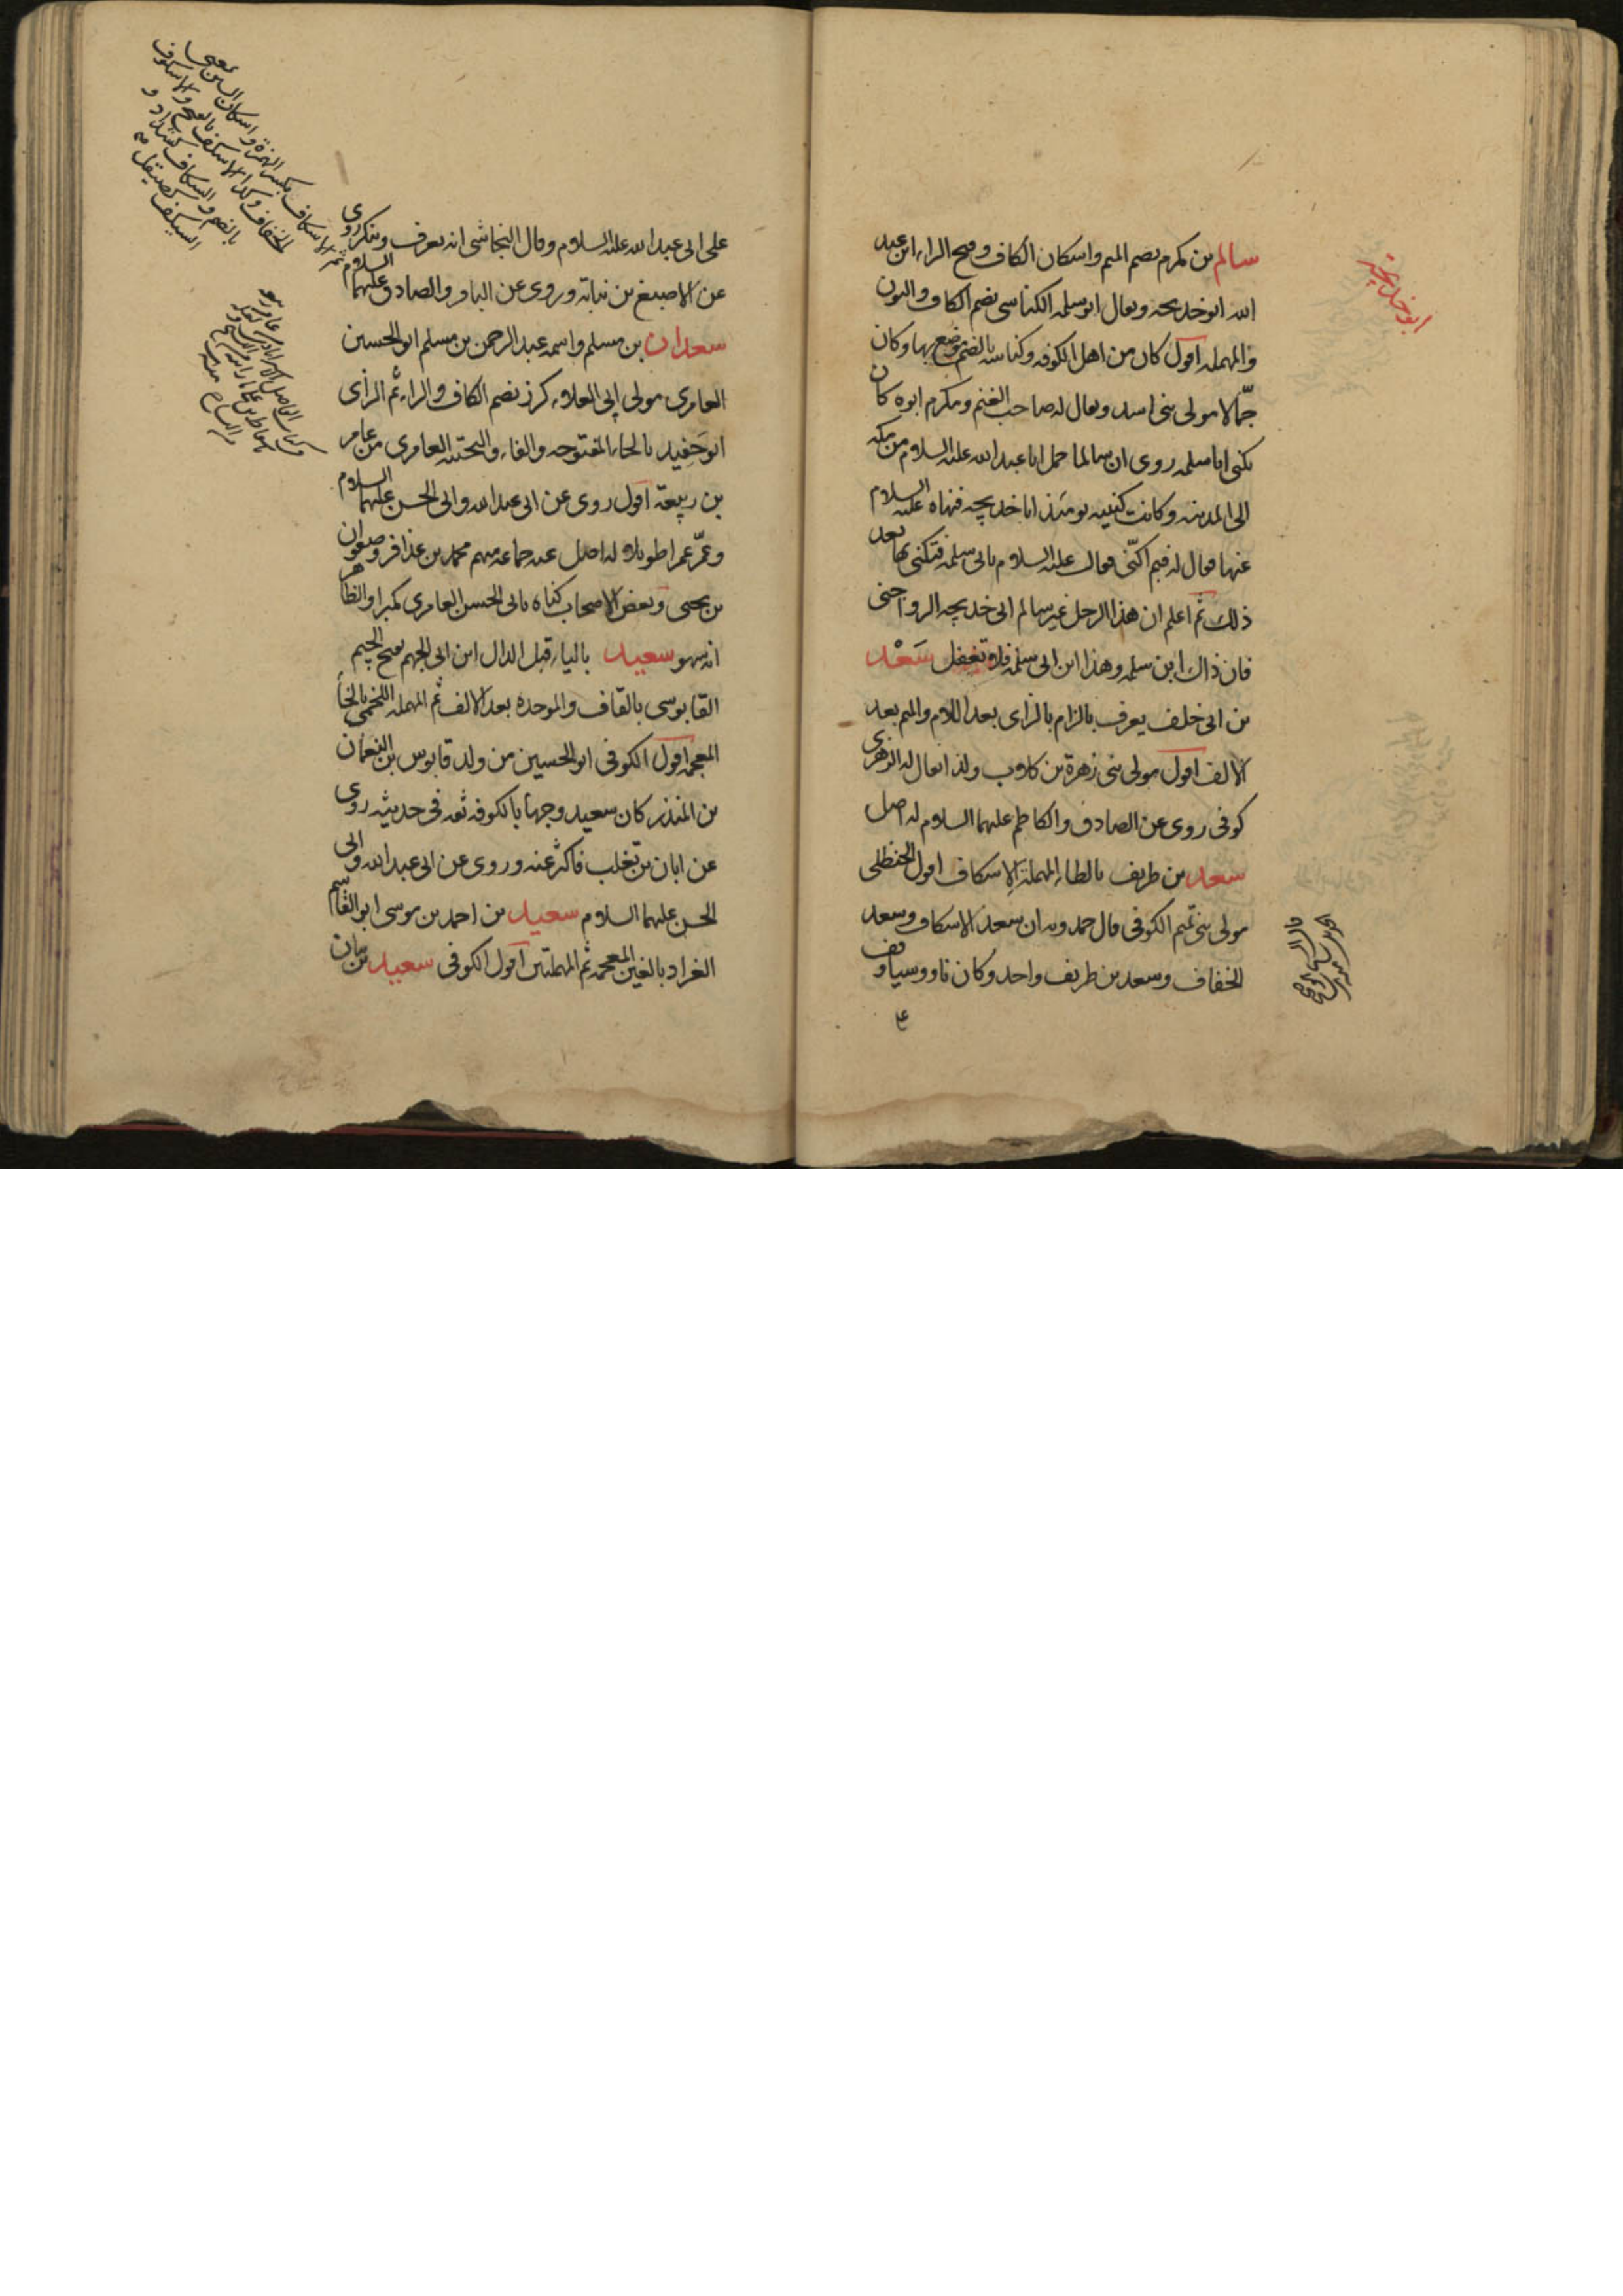 سالم بن مكرم بضم الميم واسكان الكاف وفتح الراء ابن عبد
الله ابو خديجه ويقال ابو سلمه الكناسى بضم الكاف والنون
والمهمله اقول كان من اهل الكوفه وكناسه بالضم موضع بها وكان
جمّالا مولى بنى اسد ويقال له صاحب الغنم ومكرم ابوه كان
يكنى ابا سلمه روى ان سالما حمل ابا عبد الله عليه السلام من مكه
الى المدينه وكانت كنيته يومئذ ابا خديجه فنهاه عليه السلام
عنها فقال له فبم اكنّى فقال عليه السلام بابى سلمه فتكنى بها بعد
ذلك ثم اعلم ان هذا الرجل غير سالم ابى خديجه الرواجنى
فان ذاك ابن سلمه وهذا ابن ابى سلمه فلا تغفل سَعْد
بن ابى خلف يعرف بالزام بالزاى بعد اللام والميم بعد
الالف اقول مولى بنى زهرة بن كلاب ولذا يقال له الزهرى
كوفى روى عن الصادق والكاظم عليهما السلام له اصل
سعد بن طريف بالطاء المهملة الاسكاف اقول الحنظلى
مولى بنى تميم الكوفى قال حمدويه ان سعد الاسكاف وسعد
الخفاف وسعد بن طريف واحد وكان ناووسيا وقف
ابو خديجة
على ابى عبد الله عليه السلام وقال النجاشى انه يعرف وينكر روى
عن الاصبغ بن نباته وروى عن الباقر والصادق عليهما السلام
سعدان بن مسلم واسمه عبد الرحمن بن مسلم ابو الحسين
العامرى مولى ابى العلاء كرز بضم الكاف والراء ثم الزاى
ابن حَفيد بالحاء المفتوحه والفاء والتحتيه العامرى من عامر
بن ربيعة اقول روى عن ابى عبد الله وابى الحسن عليهما السلام
وعمّر عمرا طويلا له اصل عنه جماعه منهم محمد بن عذافر وصفوان
بن يحيى وبعض الاصحاب كناه بابى الحسن العامرى مكبرا والظاهر
انه سهو سعيد بالياء قبل الدال ابن ابى الجهم بفتح الجيم
القابوسى بالقاف والموحده بعد الالف ثم المهمله اللخمى بالخاء
المعجمه اقول الكوفى ابو الحسين من ولد قابوس بن النعمان
بن المنذر كان سعيد وجها بالكوفه ثقه فى حديثه روى
عن ابان بن تغلب فاكثر عنه وروى عن ابى عبد الله وابى
الحسن عليهما السلام سعيد بن احمد بن موسى ابو القاسم
الغراد بالغين المعجمه ثم المهملتين اقول الكوفى سعيد بن بيان
الاسكاف بكسر الهمزة واسكان السين بمعنى
الخفاف وكذا الاسكف بالفتح والاسكوف
بالضم والسكاف كشداد و
السيكف كصيقل